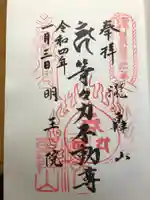 奉拝
瀧轟山
等々力不動尊
令和四年
一月三日
明王院